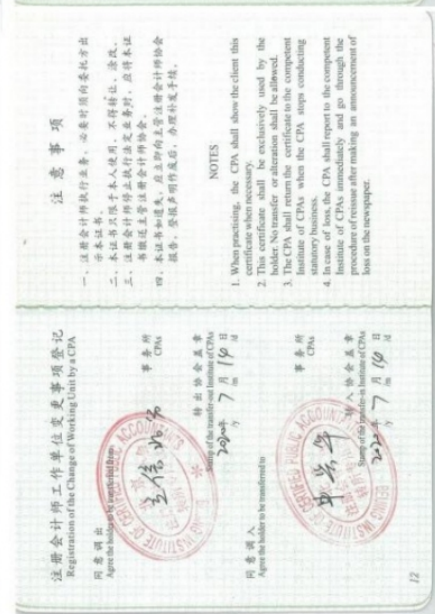 注册会计师工作单位变更事项登记
Registration of the Change of Working Unit by a CPA
同意调出
Agree the holder to be transferred from
立信北分
事务所
CPAs
转出协会盖章
Stamp of the transfer-out Institute of CPAs
2020年 7 月 14 日
/y /m /d
同意调入
Agree the holder to be transferred to
事务所
CPAs
转入协会盖章
Stamp of the transfer-in Institute of CPAs
7 月 14 日
/y /m /d
BEIJING INSTITUTE OF CERTIFIED PUBLIC ACCOUNTANTS
BEIJING INSTITUTE OF CERTIFIED PUBLIC ACCOUNTANTS
12
注意事项
一、注册会计师执行业务,必要时须向委托方出
示本证书。
二、本证书只限于本人使用,不得转让、涂改。
三、注册会计师停止执行法定业务时,应将本证
书缴还主管注册会计师协会。
四、本证书如遗失,应立即向主管注册会计师协会
报告,登报声明作废后,办理补发手续。
NOTES
1. When practising, the CPA shall show the client this
certificate when necessary.
2. This certificate shall be exclusively used by the
holder. No transfer or alteration shall be allowed.
3. The CPA shall return the certificate to the competent
Institute of CPAs when the CPA stops conducting
statutory business.
4. In case of loss, the CPA shall report to the competent
Institute of CPAs immediately and go through the
procedure of reissue after making an announcement of
loss on the newspaper.